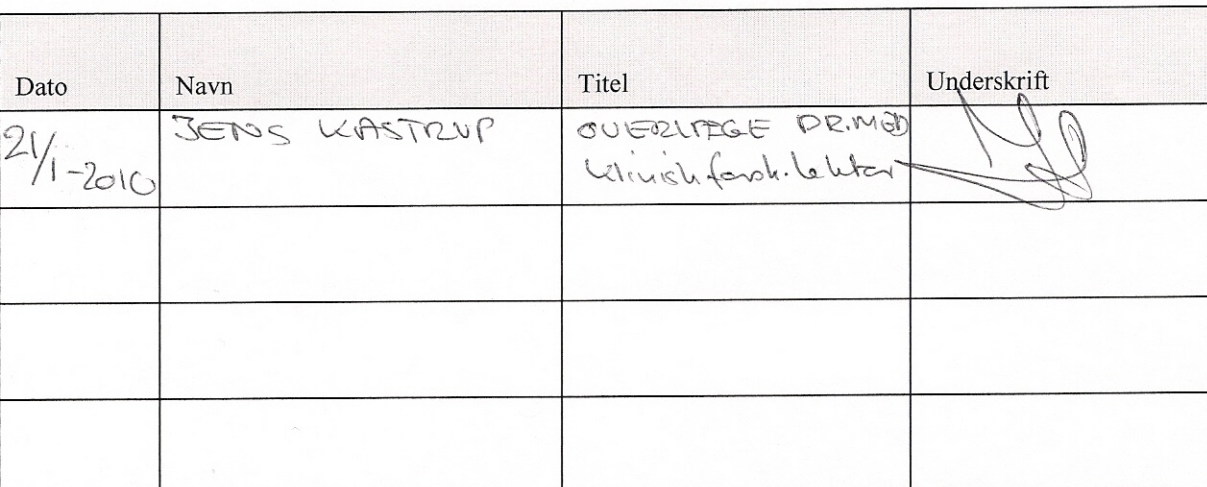 Dato Navn Titel Underskrift
21/1-2010 JENS KASTRUP OVERLÆGE DR.MED
Klinisk forsk. lektor